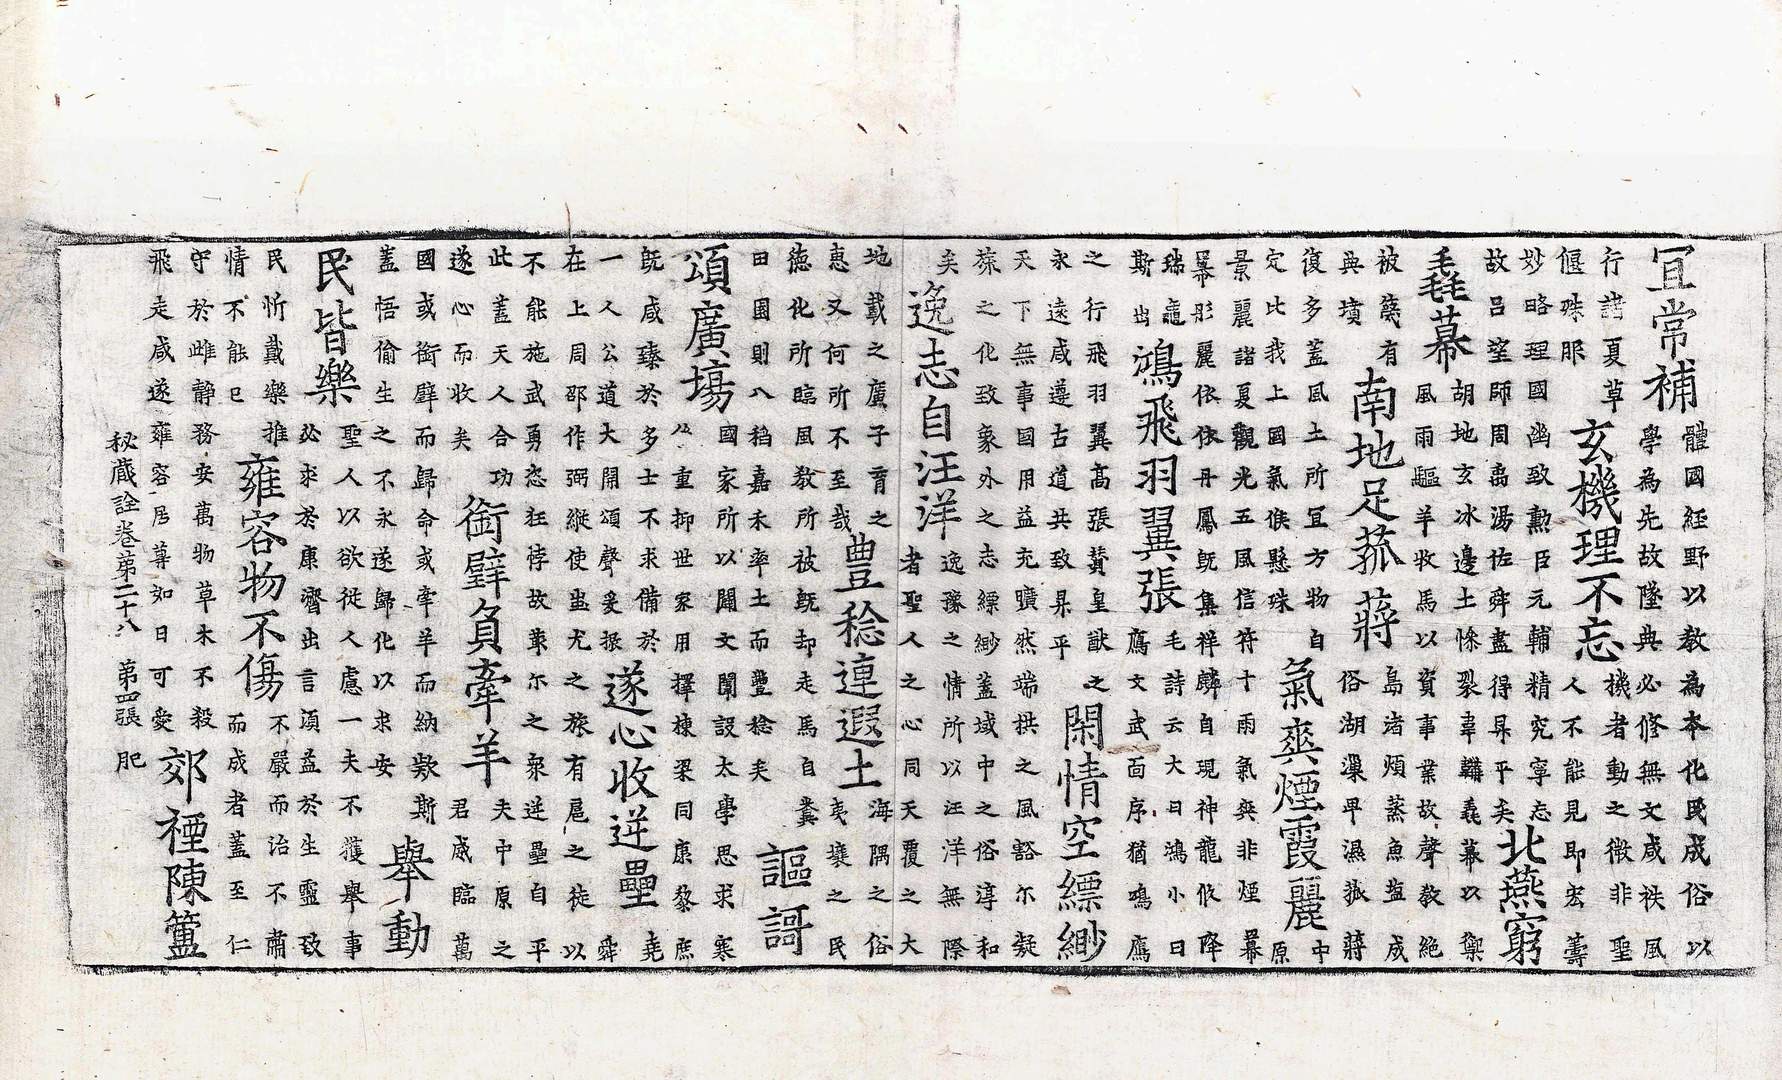 宜常補
體國經野以教為本化民成俗以
學為先故墜典必修無文咸秩風
行諸夏草
偃殊服
玄機理不忘
機者動之微非聖
人不能見耶宏籌
妙略理國幽致勲臣元輔精究寧忘
故吕望師周卨湯佐舜盡得昇平矣
北燕窮
毳幕
胡地玄冰邊土慘裂韋韝毳幕以禦
風雨驅羊牧馬以資事業故聲教絕
被蔑有
與墳
南地足菰蔣
島渚煩蒸魚盐成
俗湖瀼卑濕菰蔣
復多蓋風土所宜方物自
定比我上國氣候懸殊
氣爽煙霞麗
中
原
景麗諸夏觀光五風信符十雨氣爽非煙羃
羃彤麗依依丹鳳旣集祥麟自現神龍攸降
瑞龜
斯出
鴻飛羽翼張
毛詩云大曰鴻小曰
鴈文武面序猶鳴鴈
之行飛羽翼高張賛皇猷之
永遠咸遵古道共致昇平
閑情空縹緲
天下無事國用益充曠然端拱之風豁尔凝
㳺之化致象外之志縹緲蓋域中之俗淳和
矣
逸志自汪洋
者聖人之心同天覆之大
逸豫之情所以汪洋無際
地載之廣子育之
惠又何所不至哉
豊稔連遐土
海隅之俗
夷壤之民
德化所臨風教所被旣却走馬自糞
田園則八稻嘉禾率土而豐稔矣
謳謌
頌廣場
國家所以開文聞設太學思求寒
重抑世家用擇棟梁同康黎庶
旣咸臻於多士不求備於
一人公道大開頌聲爰振
遂心收逆壘
堯
舜
在上周邵作弼縱使蚩尤之旅有扈之徒以
不能施武勇恣狂悖故尓之衆逆壘自平
此蓋天人合功
遂心而收矣
銜璧負牽羊
夫中原之
君咸臨萬
國或銜璧而歸命或牽羊而納欵斯
蓋悟偷生之不永遂歸化以求安
舉動
民皆樂
聖人以欲從人慮一夫不獲舉事
必求於康濟出言須益於生靈致
民忻戴樂推
情不能已
雍容物不傷
不嚴而治不肅
而成者蓋至仁
守於雌静務安萬物草木不殺
飛走咸遂雍容居尊如日可愛
郊禋陳簠
秘藏詮卷第二十八　第四張　肥